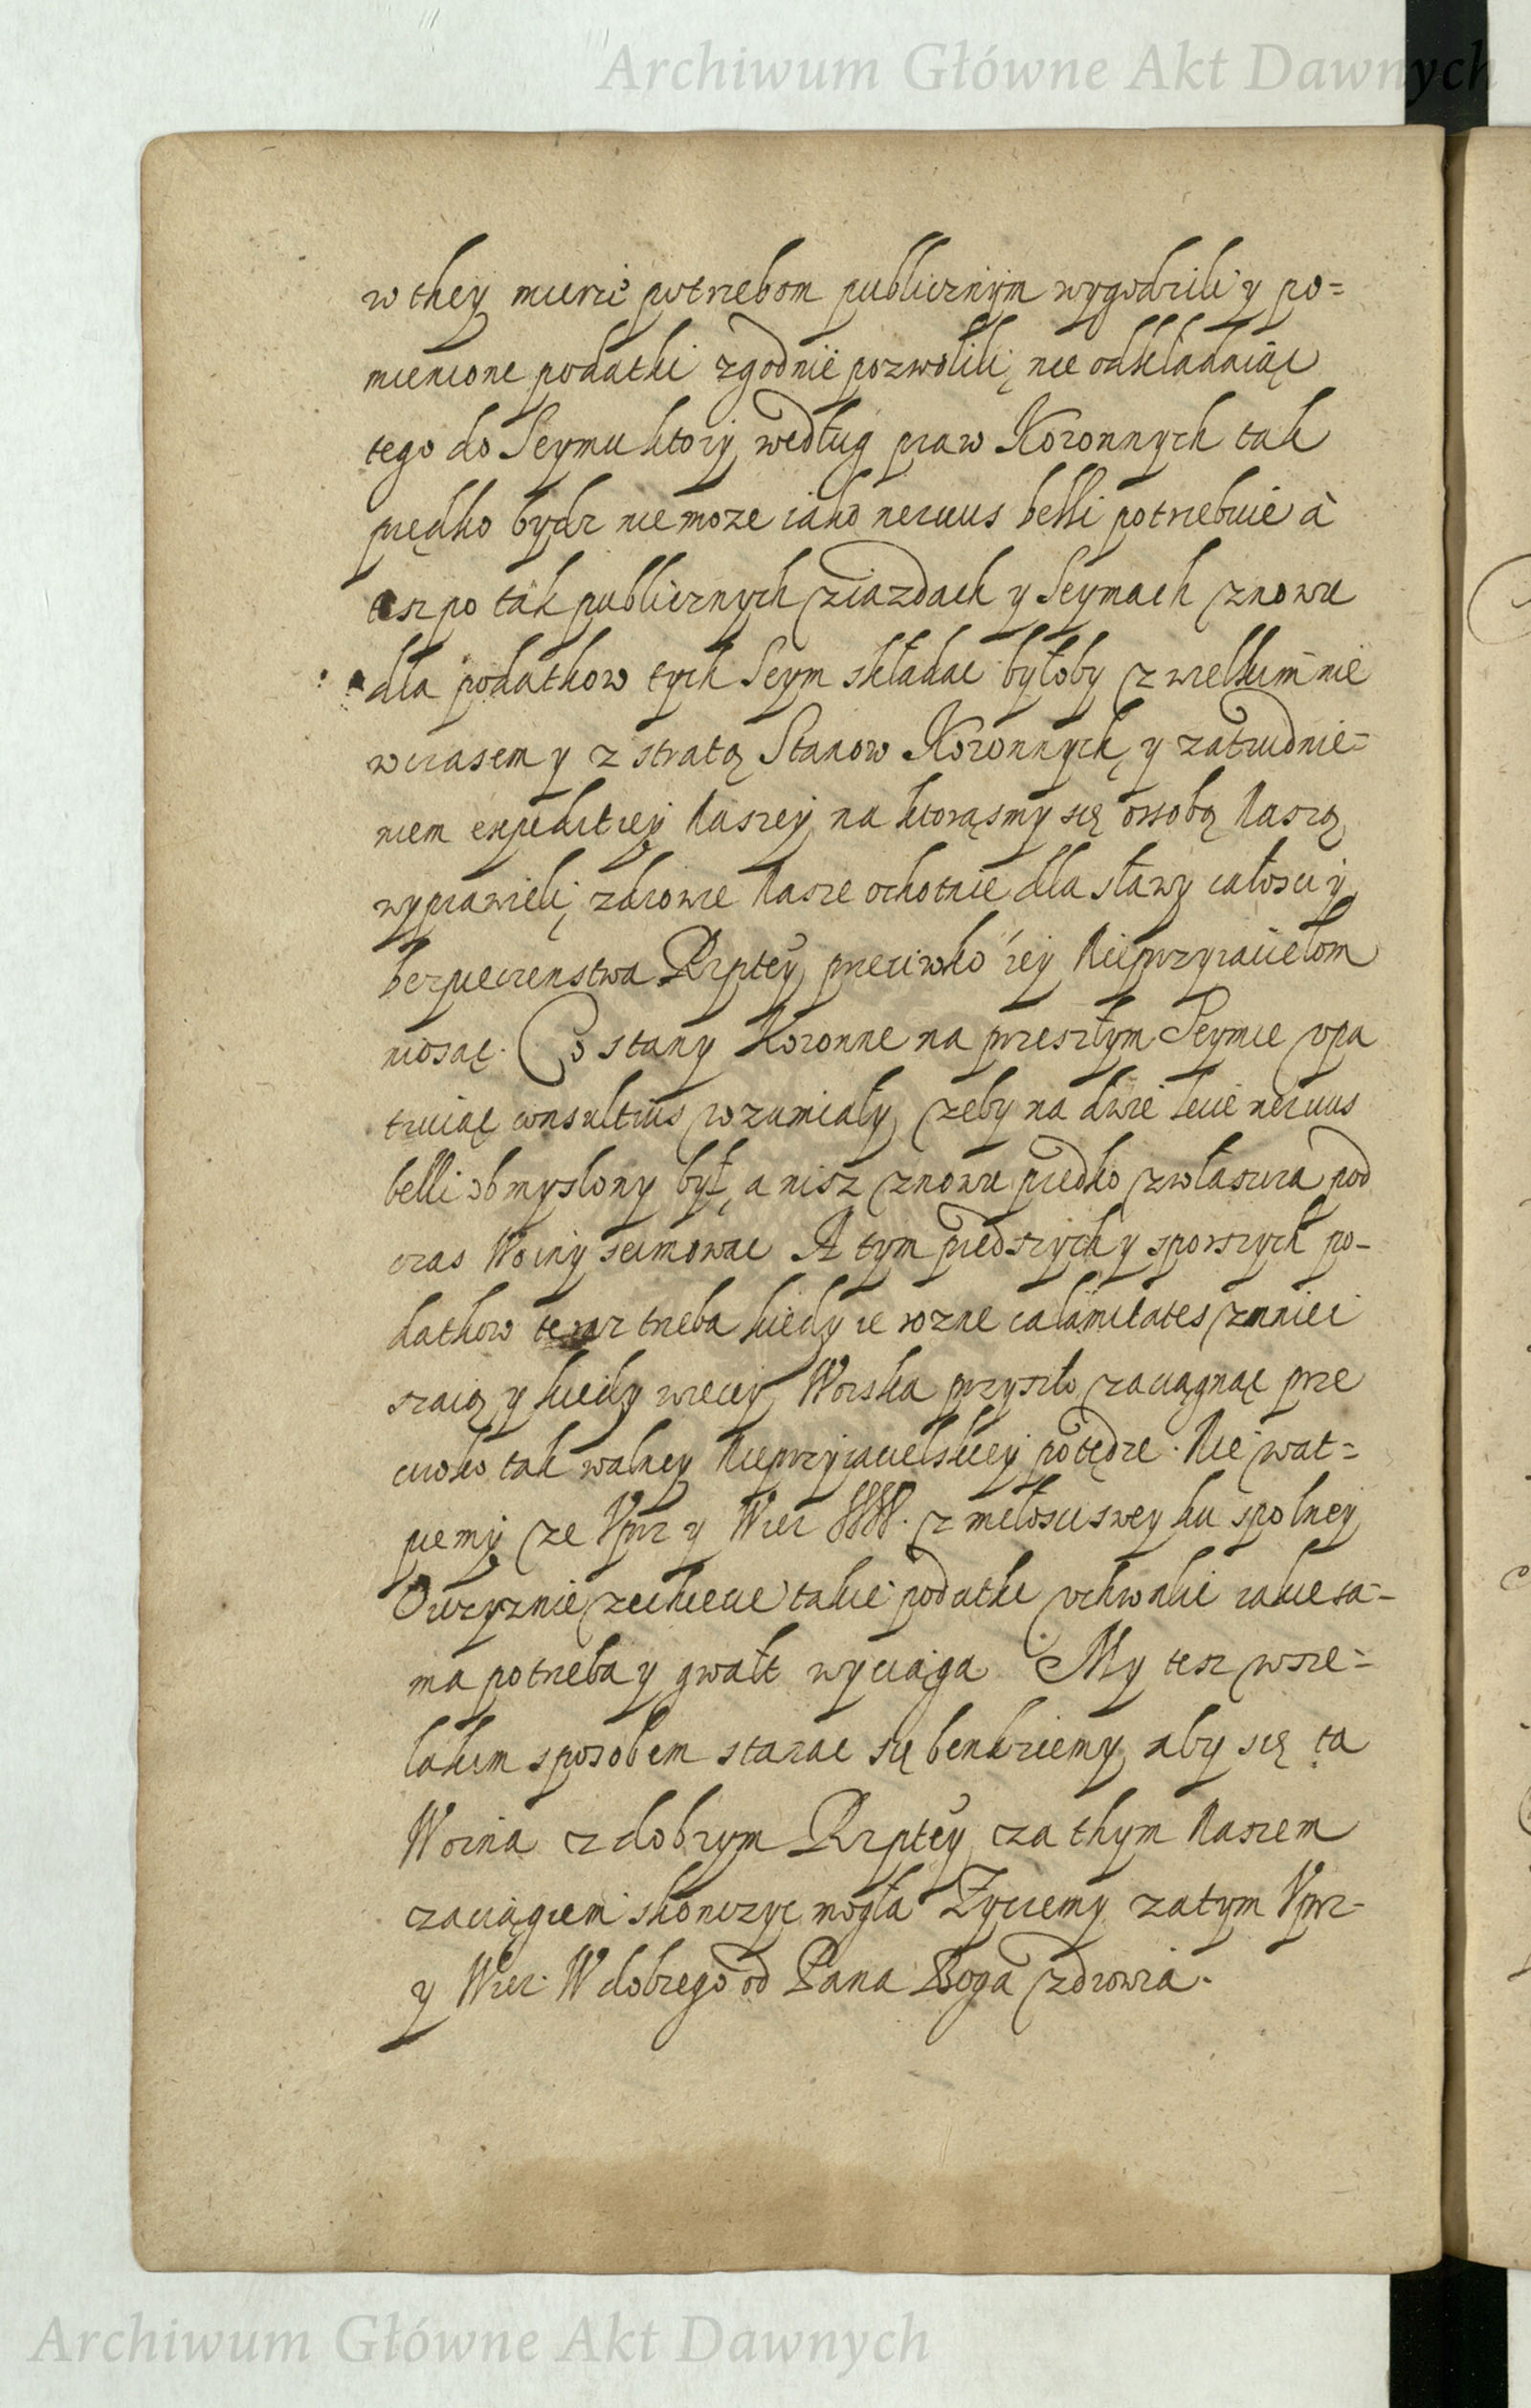 Archiwum Główne Akt Dawnych
w they mierze potrzebom publicznym wygodzili y po=
mienione podatki zgodnie pozwolili, nie odkładaiąc
tego do Seymu ktory według praw Koronnych tak
prędko bydz nie moze iako neruus belli potrzebuie à
tesz po tak publicznych ziazdach y Seymach znowu
dla podatkow tych Seym składac byłoby z wielkim nie
wczasem y z stratą Stanow Koronnych, y zatrudnie=
niem expeditiey Naszey na ktorąsmy się ossobą Naszą
wyprawieli, zdrowie Nasze ochotnie dla sławy całosci y
bezpieczenstwa Rzptey przeciwko iey Nieprzyiacielom
niosąc. Co stany Koronne na przeszłym Seymie vpa
truiąc consultius rozumiały, zeby na dwie lecie neruus
belli obmyslony był, a nisz znowu prędko zwłaszcza pod
czas Woiny seimowac A tym prędszych y sporszych po-
datkow teraz trzeba kiedy ie rozne calamitates zmniei
szaią y kiedy wiecey Woiska przyszło zaciągnąc prze
ciwko tak walney Nieprzyiacielskiey potędze. Nie wat=
piemy ze Vprz y Wier WW. z miłosci swey ku spolney
Oiczyznie zechcecie takie podatki vchwalić iakie sa-
ma potrzeba y gwałt wyciąga. My tesz wsze=
lakim sposobem starac się bendziemy, aby się ta
Woina z dobrym Rzptey za thym Naszem
zaciągiem skonczyc mogła Zyczemy zatym Vprz-
y Wier: W dobrego od Pana Boga zdrowia.
Archiwum Główne Akt Dawnych